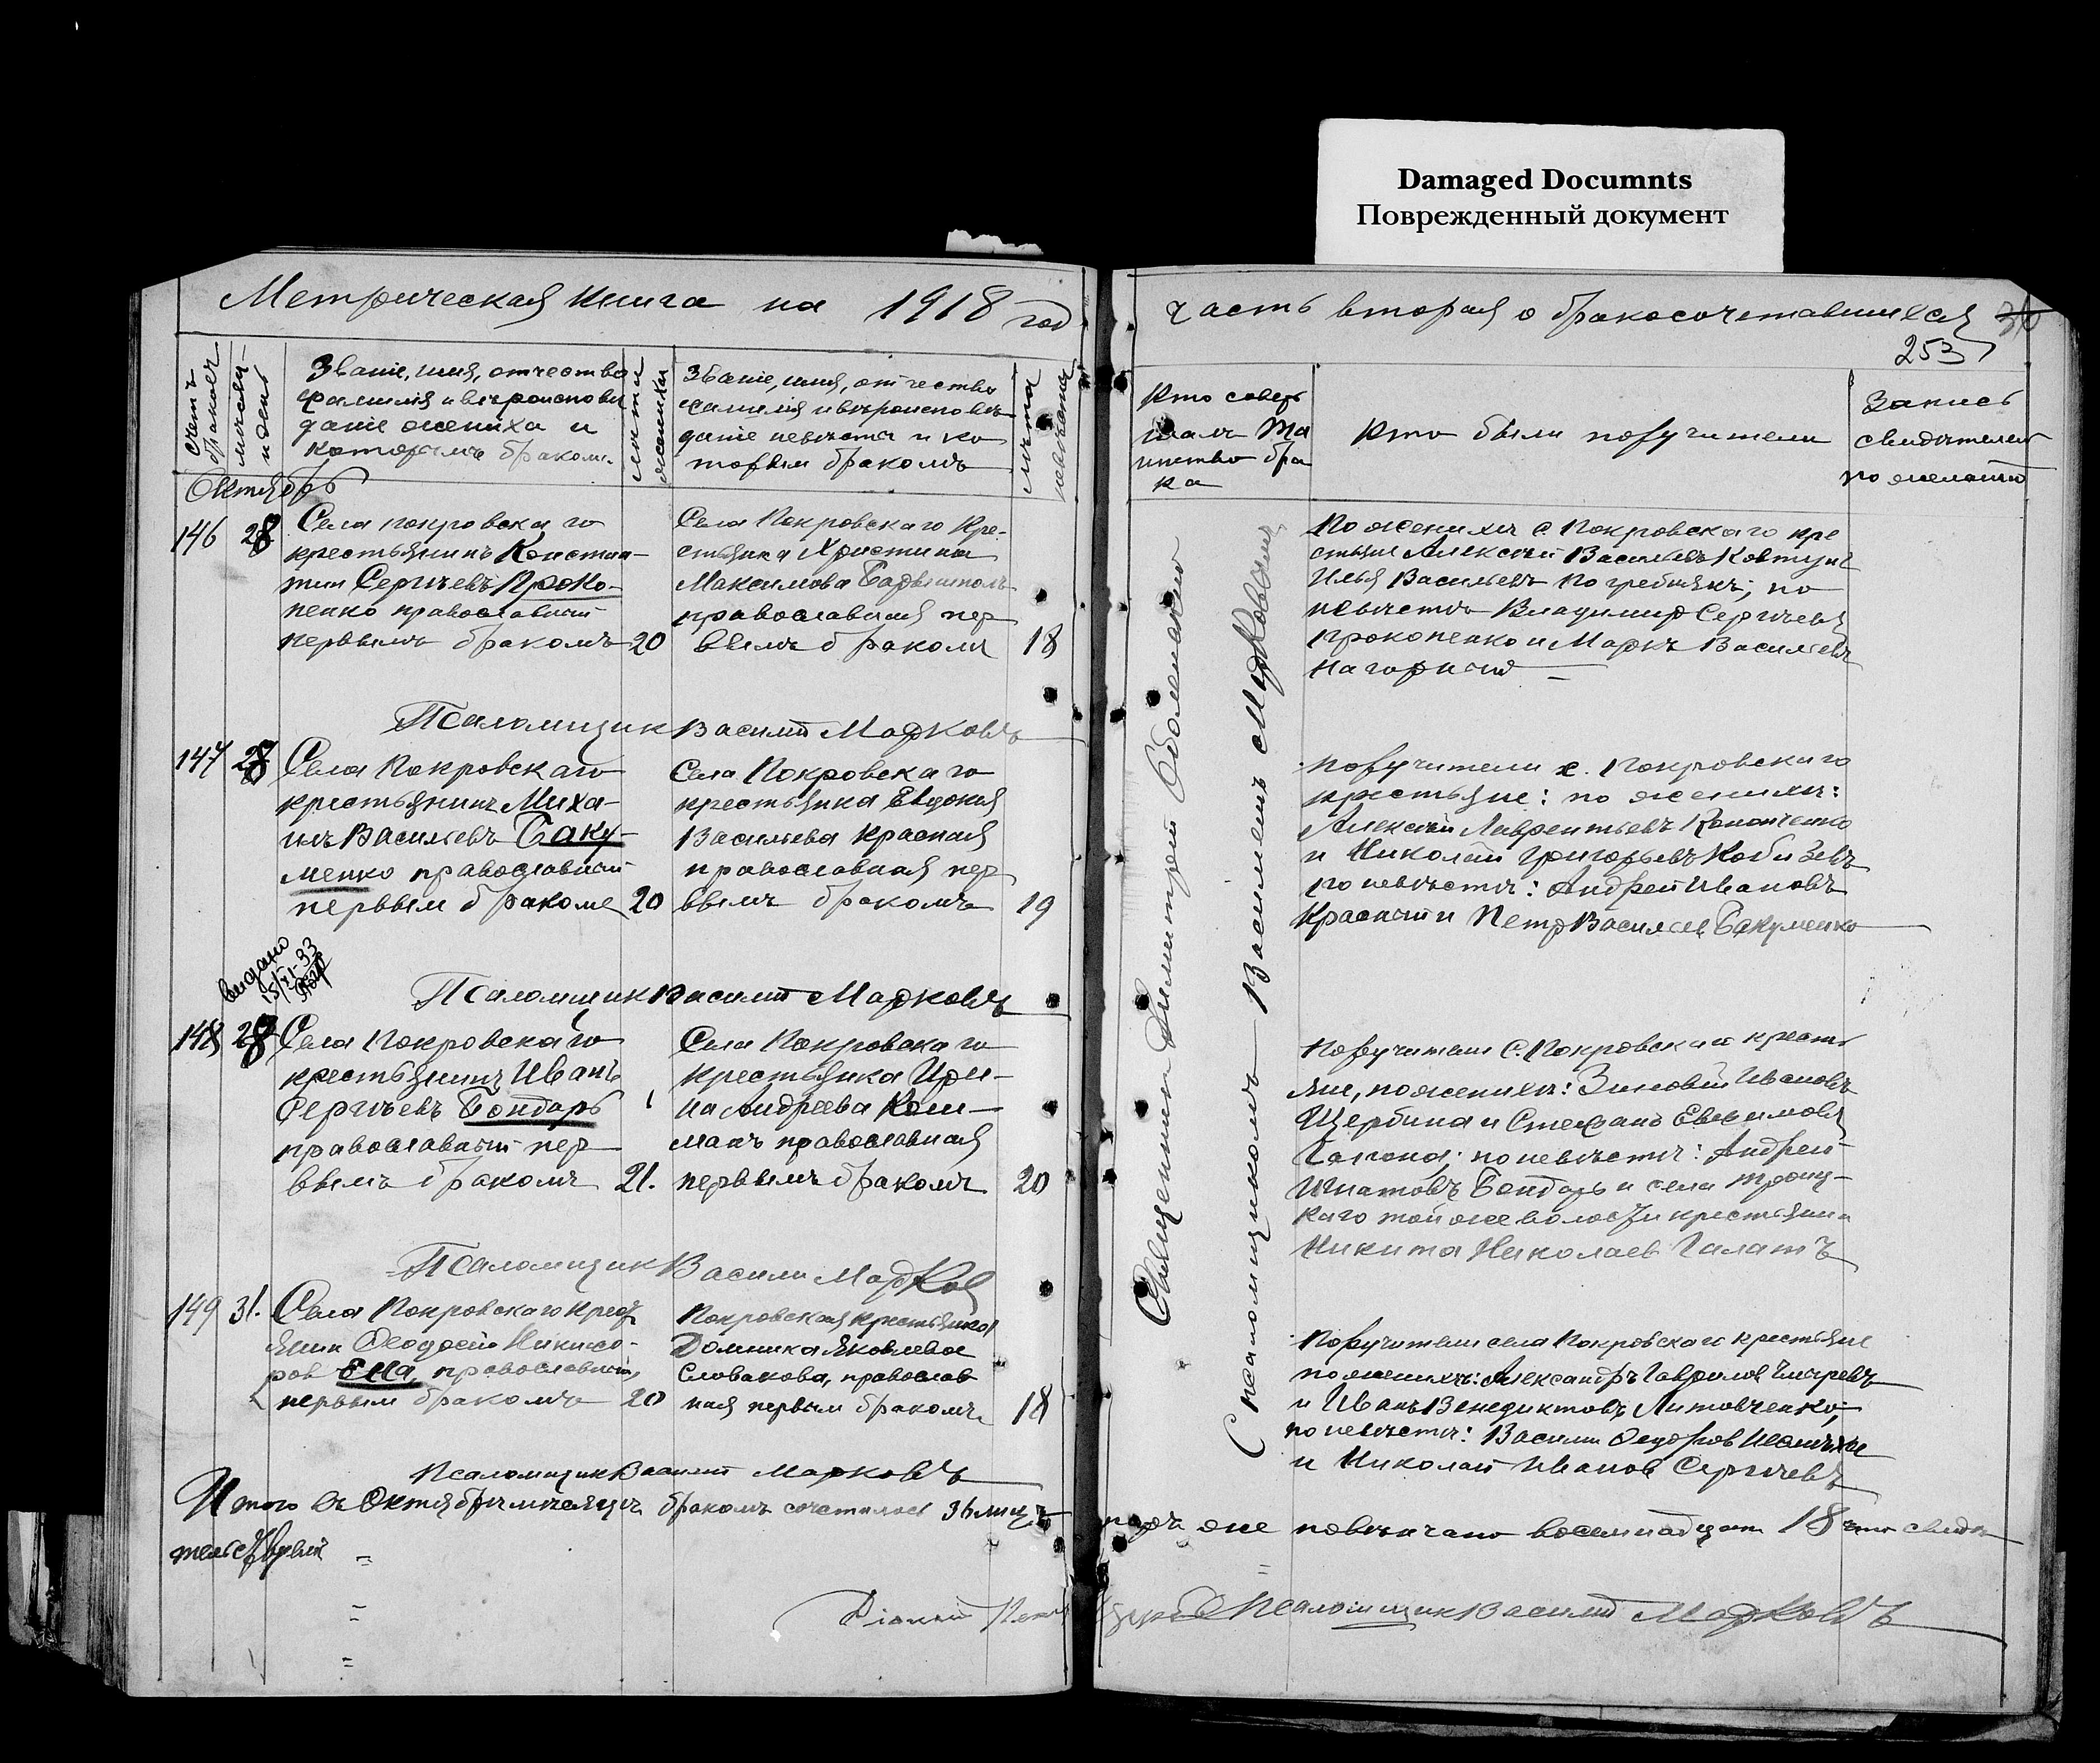 Damaged Documnts
Поврежденный документ
Метрическая книга на 1918 год
часть вторая о бракосочетавшихся
253
Счетъ браковъ
мѣсяцъ и день
Званіе, имя, отчество
фамилія и вѣроисповѣ
даніе жениха и
которымъ бракомъ
лѣта жениха
Званіе, имя, отчество
фамилія и вѣроисповѣ
даніе невѣсты и ко
торым бракомъ
лѣта невѣсты
Кто совер
шалъ Та
инство бра
ка
Кто были поручители
Запись
свидѣтелей
по желанію
Октябрь
146 28
Села покровскаго
крестьянинъ Констан
тин Сергѣевъ Проко-
пенко православный
первымъ бракомъ 20
Села Покровскаго Кре-
стьянка Христина
Максимова
православная пер
вымъ бракомъ 18
По женихѣ с. Покровскаго кре
стьяне Алексѣй Васильевъ Ковтун
Илья Васильевъ Погребнякъ; по
невѣстѣ Владимир Сергѣевъ
Прокопенко и Маркъ Васильевъ
Нагорный
Псаломщик Василій Марковъ
147 28
Села Покровскаго
крестьянинъ Миха-
илъ Васильевъ Баку-
менко православный
первым браком 20
Села Покровскаго
крестьянка Евдокия
Васильева Красная
православная пер
вымъ бракомъ 19
Поручители с. Покровскаго
крестьяне: по женихѣ:
Алексѣй Лаврентьевъ Кононченко
и Николай Григорьевъ
по невѣстѣ: Андрей Ивановъ
Красный и Петр Васильев Бакуменко
видано
Псаломщик Василій Марковъ
148 28
Села Покровскаго
крестьянинъ Иванъ
Сергѣевъ Бондарь
православный пер
вымъ бракомъ 21.
Села Покровскаго
крестьянка Ири-
на Андреева Кош-
манъ православная
первымъ бракомъ 20
Поручители с. Покровскаго кресть
яне, по женихѣ: Зиновій Ивановъ
Щербина и Стефанъ Евфимовъ
Гапона; по невѣстѣ: Андрей
Игнатовъ Бондарь и села Троиц-
каго той же волости крестьянин
Никита Николаев Галатъ
Псаломщик Василий Марков
149 31.
Села Покровскаго крест
янин Феодосій Никифо-
ров Ена, православный,
первым бракомъ 20
Покровская крестьянка
Домника Яковлева
Словакова, православ
ная первым бракомъ 18
Поручители села Покровскаго крестьяне
по женихѣ: Александръ Гаврилов
и Иванъ Венедиктовъ Литовченко;
по невѣстѣ: Василий Федоров
и Николай Иванов Сергѣевъ
Псаломщик Василий Марковъ
Священникъ Димитрій
С псаломщикомъ Василіемъ Марковымъ
Итого въ Октябрѣ мѣсяцѣ бракомъ сочеталось 36 лицъ
паръ же повѣнчано восемнадцать 18 что свидѣ
тельствуем
Діакон
Псаломщик Василій Марковъ